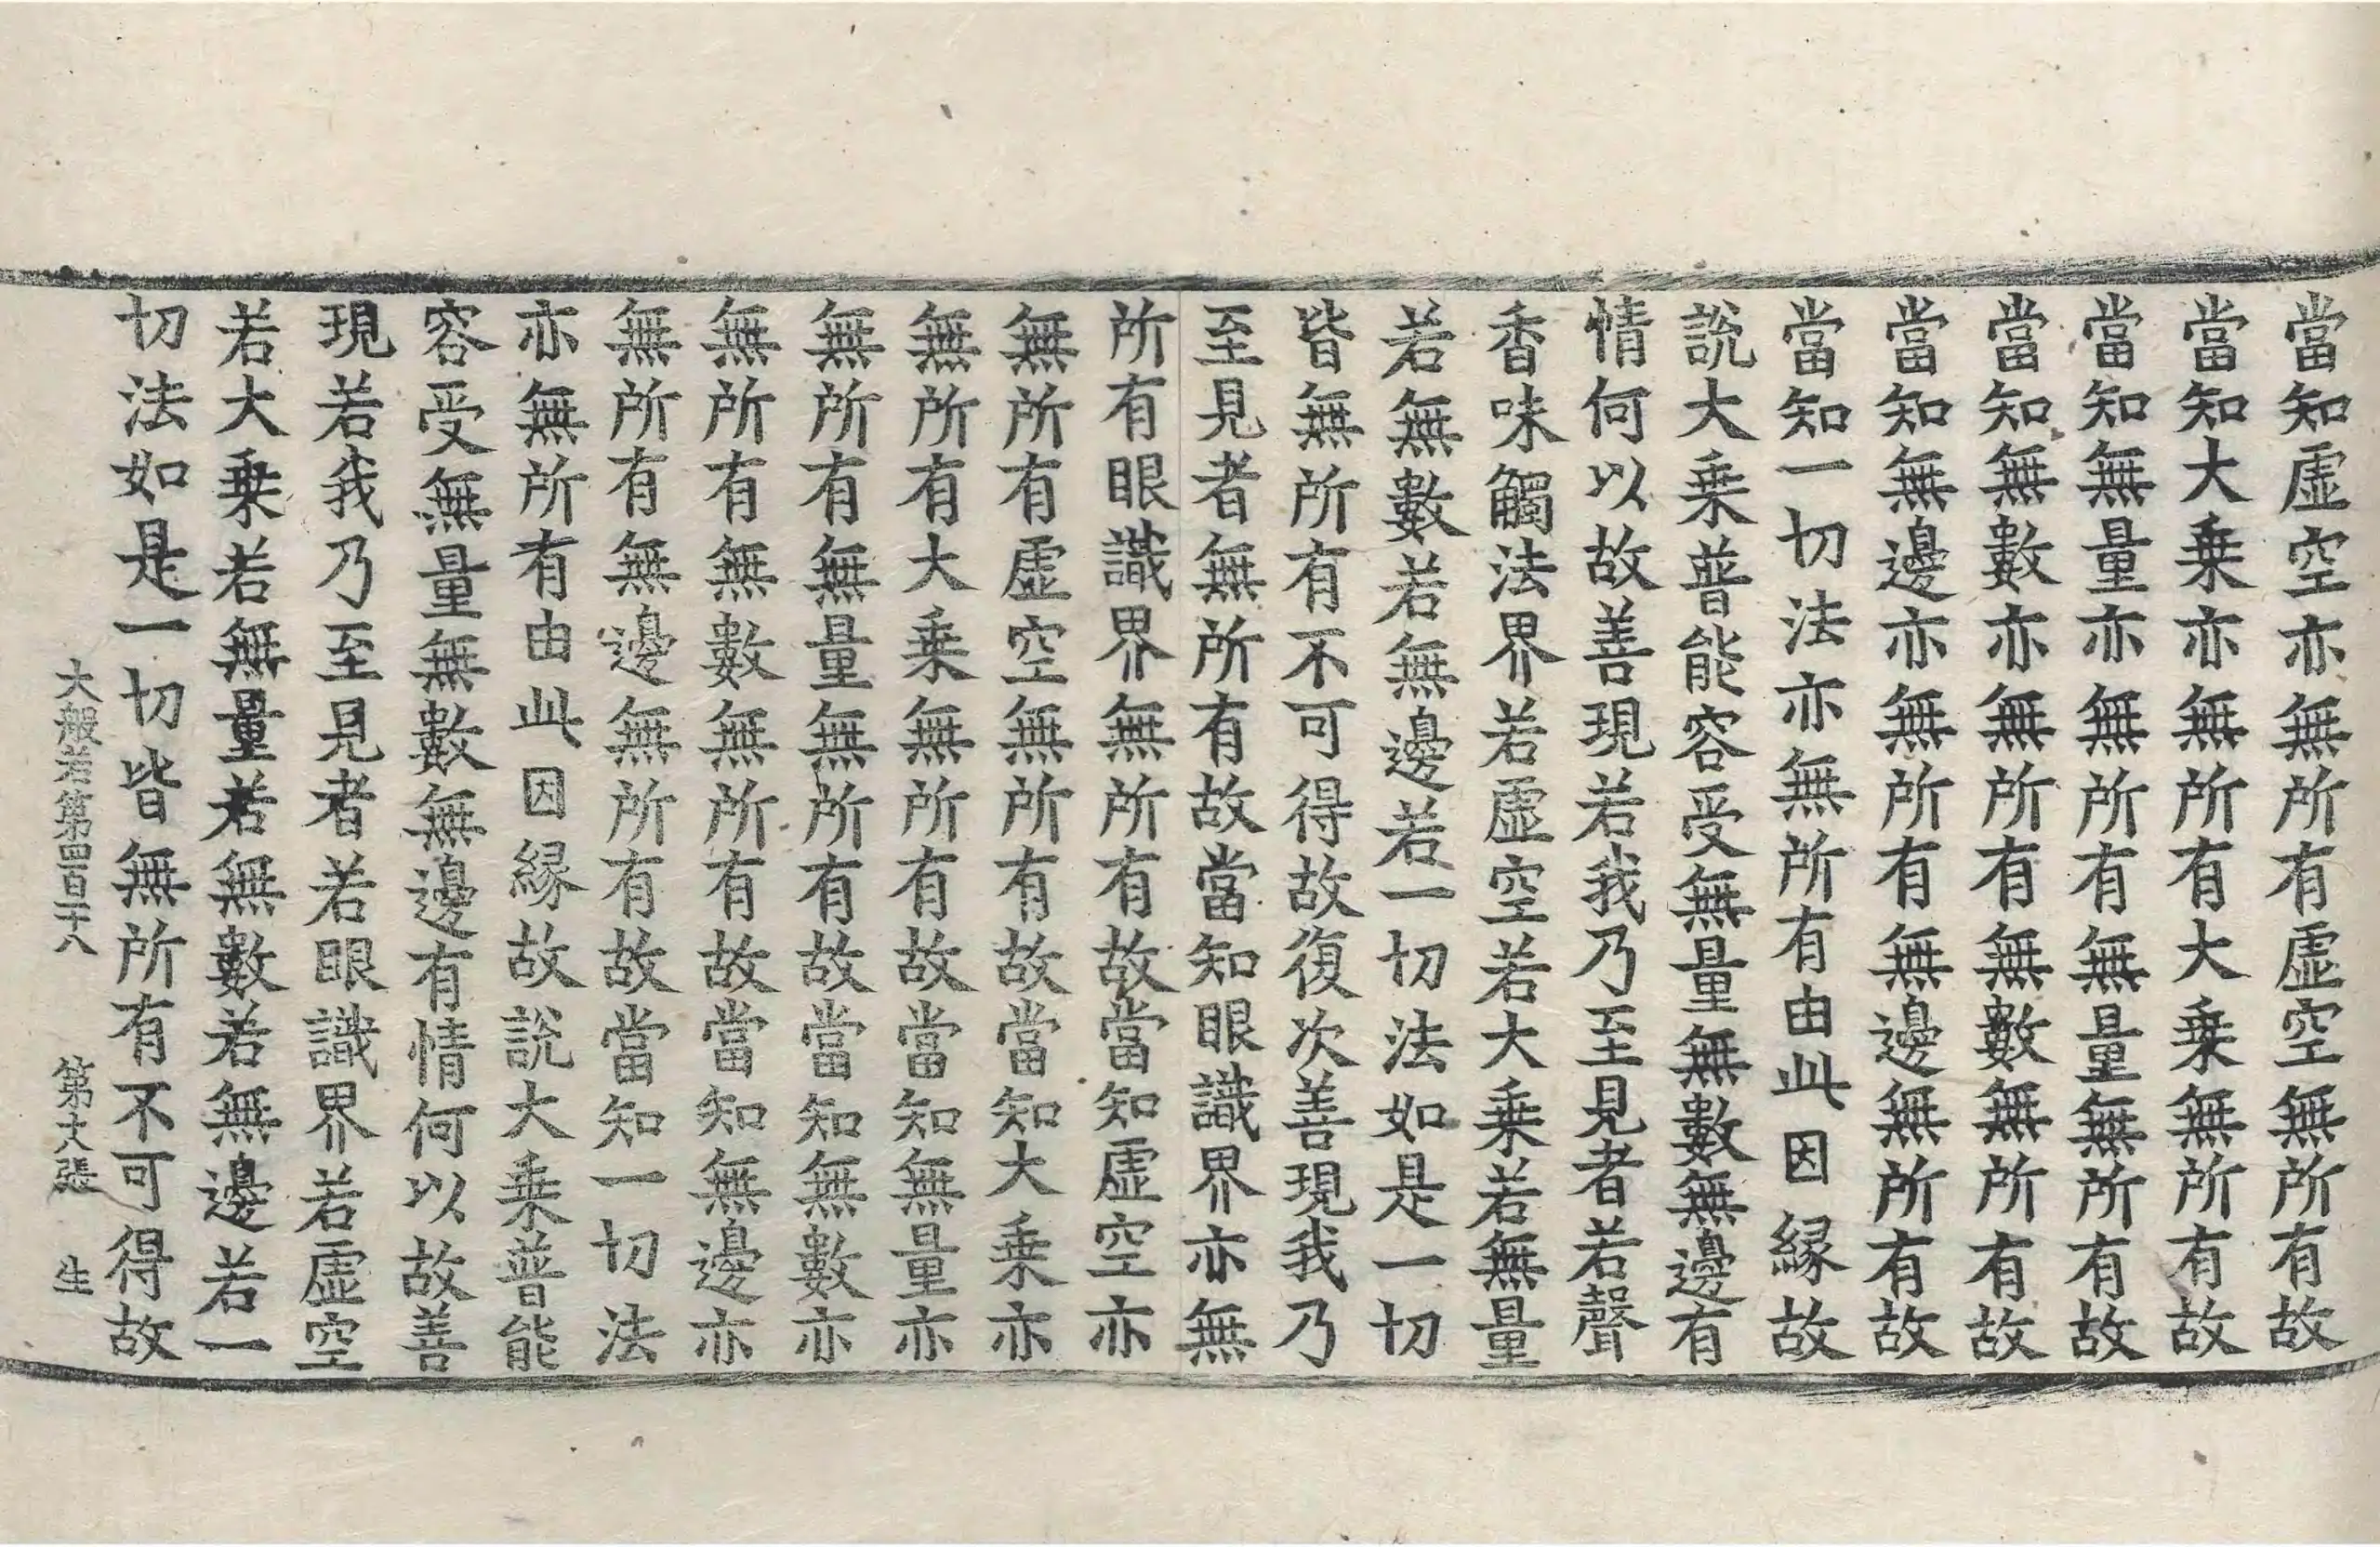 當知虛空亦無所有虛空無所有故
當知大乗亦無所有大乗無所有故
當知無量亦無所有無量無所有故
當知無數亦無所有無數無所有故
當知無邊亦無所有無邊無所有故
當知一切法亦無所有由此因縁故
說大乗普能容受無量無數無邊有
情何以故善現若我乃至見者若聲
香味觸法界若虛空若大乗若無量
若無數若無邊若一切法如是一切
皆無所有不可得故復次善現我乃
至見者無所有故當知眼識界亦無
所有眼識界無所有故當知虛空亦
無所有虛空無所有故當知大乗亦
無所有大乗無所有故當知無量亦
無所有無量無所有故當知無數亦
無所有無數無所有故當知無邊亦
無所有無邊無所有故當知一切法
亦無所有由此因縁故說大乗普能
容受無量無數無邊有情何以故善
現若我乃至見者若眼識界若虛空
若大乗若無量若無數若無邊若一
切法如是一切皆無所有不可得故
大般若第四百二十八 第十八張 生